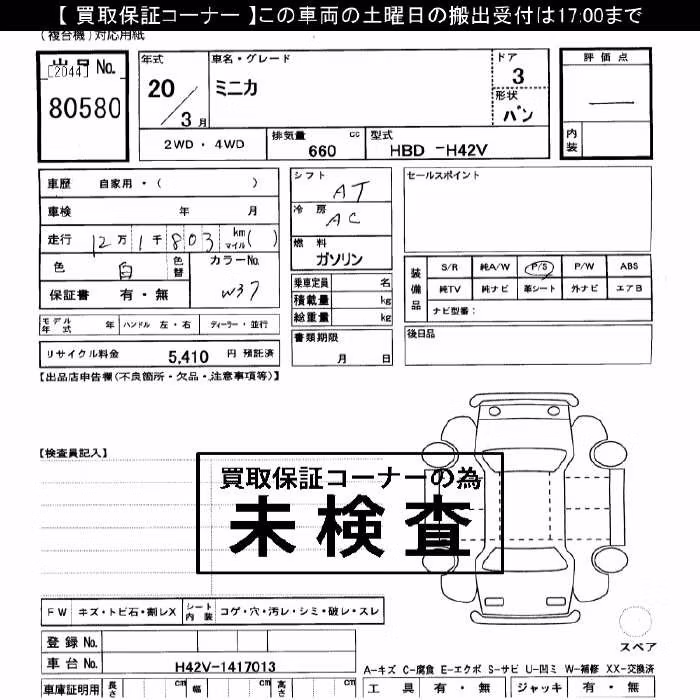 【 買取保証コーナー 】この車両の土曜日の搬出受付は17:00まで
(複合機)対応用紙
出品 No.
[2044]
80580
年式
20
3 月
車名・グレード
ミニカ
ドア
3
形状
バン
評価点
―
内装
2WD ・ 4WD
排気量 cc
660
型式
HBD -H42V
車歴 自家用・( )
車検 年 月
走行 12万1千803 km マイル( )
色 白 色替
カラーNo.
W37
保証書 有・無
シフト
AT
冷房
AC
燃料
ガソリン
乗車定員 名
積載量 kg
総重量 kg
書類期限
月 日
セールスポイント
装備品
S/R 純A/W P/S P/W ABS
純TV 純ナビ 革シート 外ナビ エアB
ナビ型番：
後日品
モデル年式 年 ハンドル 左・右 ディーラー・並行
リサイクル料金 5,410 円 預託済
【出品店申告欄(不良箇所・欠品・注意事項等)】
【検査員記入】
買取保証コーナーの為
未検査
FW キズ・トビ石・割レX シート内装 コゲ・穴・汚レ・シミ・破レ・スレ
登録 No.
車台 No. H42V-1417013
車庫証明用 長さ cm 幅 cm 高さ cm
スペア
A-キズ C-腐食 E-エクボ S-サビ U-凹ミ W-補修 XX-交換済
工具 有・無 ジャッキ 有・無